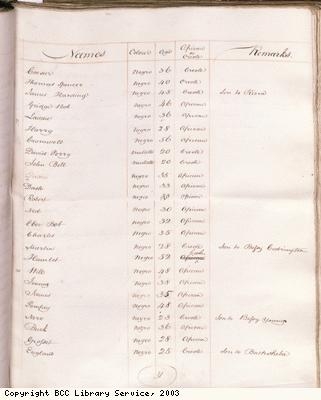 Names Colour Age African or Creole Remarks.
Caesar Negro 36 Creole
Thomas Spencer Negro 40 Creole
James Harding Negro 43 Creole Son to
Negro 46 African
Negro 36 African
Harry Negro 28 African
Cromwell Negro 36 African
David Perry Mulatto 20 Creole
John Bell Mulatto 20 Creole
Negro 35 African
Dick Negro 33 African
Robert Negro 30 African
Ned Negro 30 African
Bob Negro 32 African
Charles Negro 35 African
Martin Negro 28 Creole Son to Betsy Codrington
Hamlet Negro 32
Will Negro 48 African
Negro 38 African
James Negro 35 African
Pompey Negro 48 African
Nero Negro 23 Creole Son to Betsy
Negro 36 African
Negro 28 African
England Negro 25 Creole Son to Bathsheba
Copyright BCC Library Service, 2003